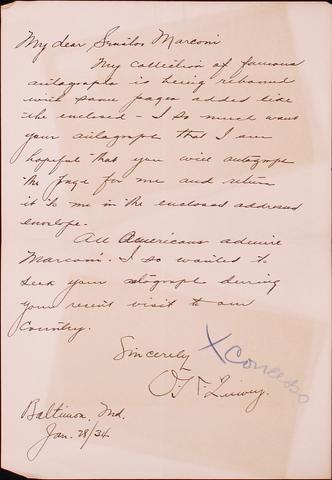 My dear Senator Marconi
My collection of famous
autographs is being rebound
with some pages added like
the enclosed - I so much want
your autograph that I am
hopeful that you will autograph
the page for me and return
it to me in the enclosed addressed
envelope.
All Americans admire
Marconi. I so wanted to
seek your autograph during
your recent visit to our
Country.
Sincerely
X Concesso
Baltimore, Md.
Jan. 28/34